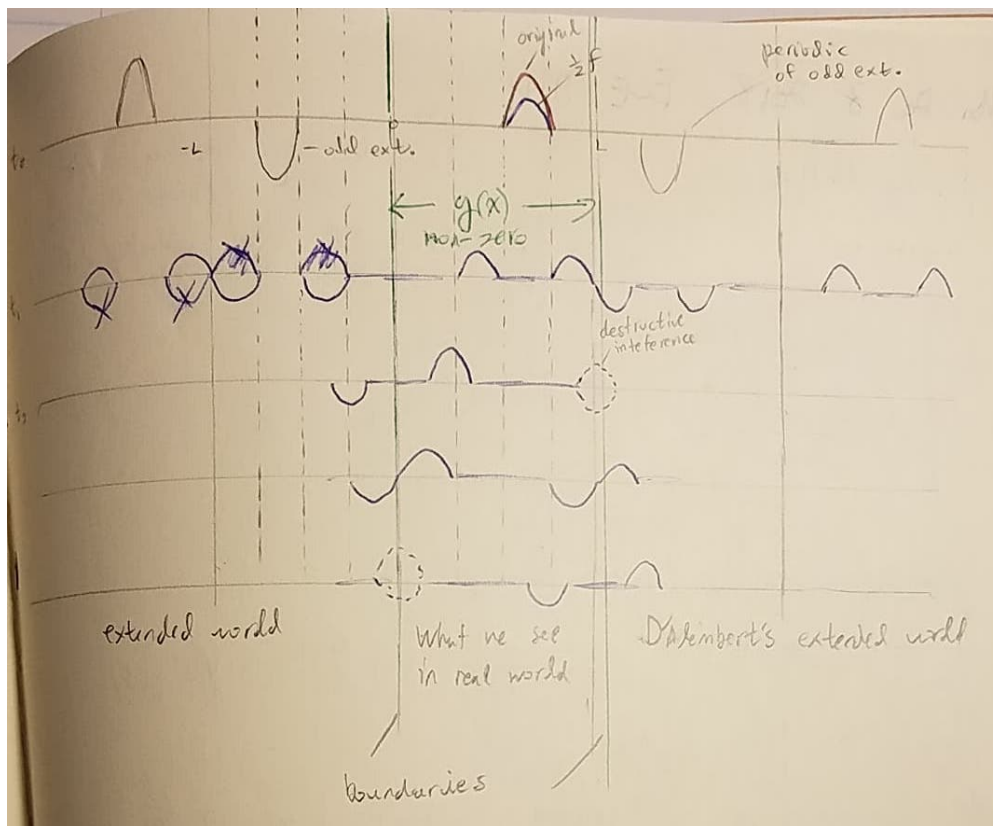 original
½f
periodic
of odd ext.
-L
- odd ext.
L
g(x)
non-zero
t₁
destructive
inteference
extended world
What we see
in real world
D'Alembert's extended world
boundaries